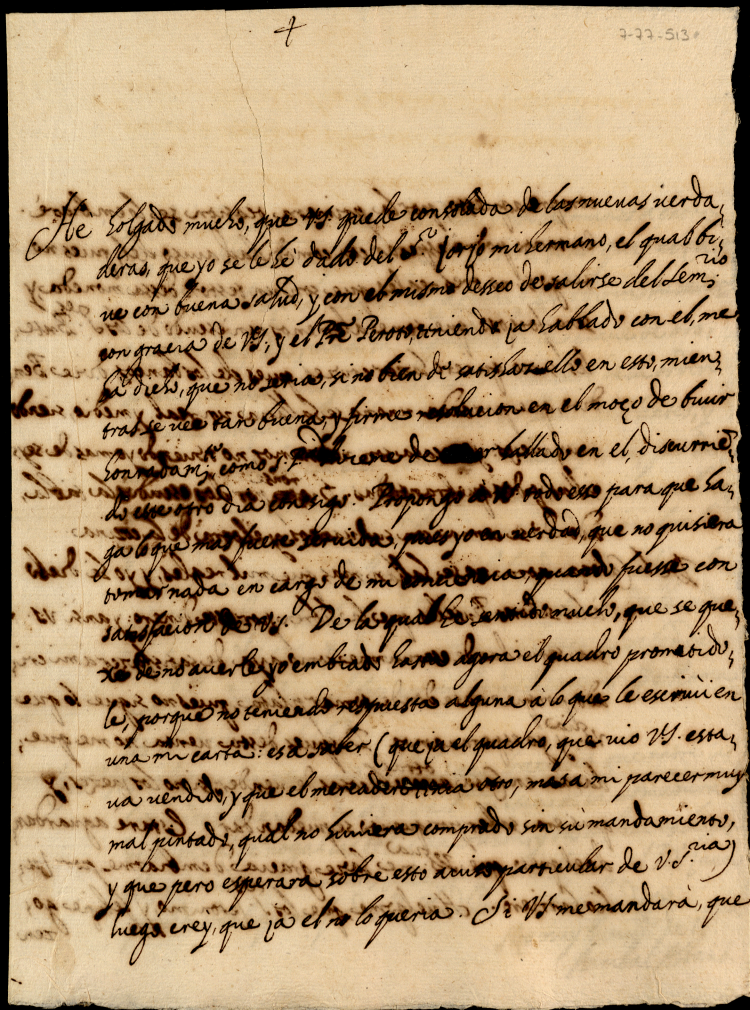 +
7-77-513
Hé holgado mucho, que VS. quede consolada de las nuevas verda,
deras, que yo se le hé dado del Sr. Jorjo mi hermano, el qual bi,
ve con buena salud, y con el mismo desseo de salirse del Sem,rio
con gracia de VS., y el Pre Peroto, teniendo ja hablado con el, me
há dicho, que no seria, sino bien de satishazello en esto, mien,
tras se vee tan buena, y firme resolucion en el moço de bivir
honradam,te como S. P. de hallado en el, discurrien,
do este otro dia consigo. Propongo a VS. todo esso para que ha,
ga lo que mas fuere servida, pues yo en verdad, que no quisiera
tomar nada en cargo de mi conciencia, quando fuesse con
satisfacion de VS. De la qual hé sentido mucho, que se que,
xe de no averle yo embiado hasta agora el quadro prometido,
le, porque no teniendo respuesta alguna à lo que le escriví en
una mi carta: es a saber (que ja el quadro, que vio VS. esta,
va vendido, y que el mercader tinia otro, mas a mi parecer muy
mal pintado, qual no huviera comprado sin su mandamiento,
y que pero esperara sobre esto aviso particular de V.S.ria)
luego creÿ, que ja el no lo queria. Si VS me mandarà, que